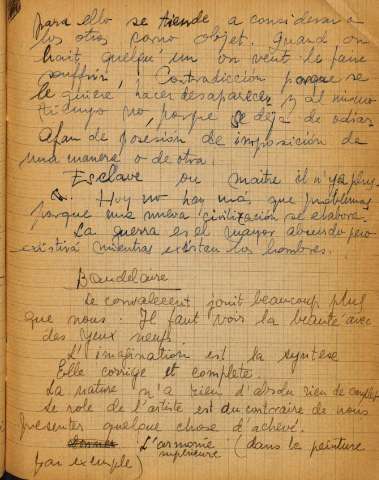 para ello se tiende a considerar a
los otros como objet. Quand on
hait quelqu'un on veut le faire
souffrir, ¡Contradicción porque se
le quiere hacer desaparecer y al mismo
tiempo no, porque se deja de odiar.
Afan de posesión de imposición de
una manera o de otra.
Esclave ou maitre il n'y a plus
Hoy no hay más que problemas
porque una nueva civilización se elabora.
La guerra es el mayor absurdo pero
existirá mientras existan los hombres.
Baudelaire
Le convalecent jouit beaucoup plus
que nous. Il faut voir la beauté avec
des yeux neufs.
L'imagination est la syntèse
Elle corrige et complete.
La nature n'a rien d'absolu rien de complet
Le role de l'artiste est au contraire de nous
presenter quelque chose d'achevé.
L'armonie (dans la peinture
superieure
par exemple)